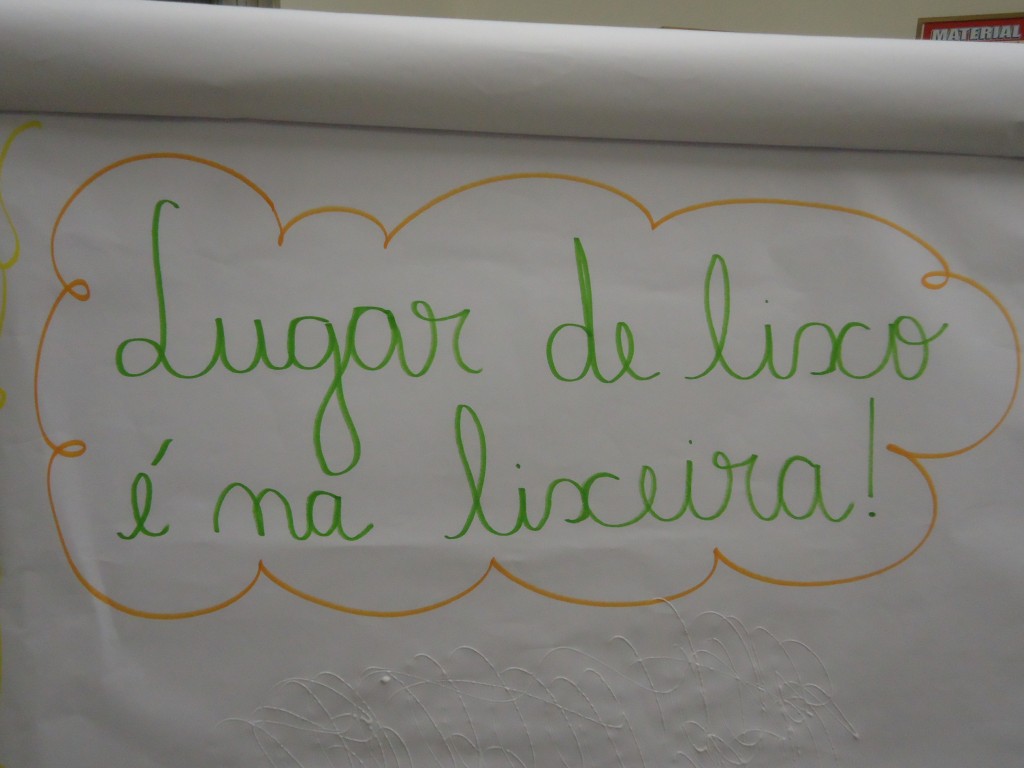 MATERIAL
Lugar de lixo
é na lixeira!